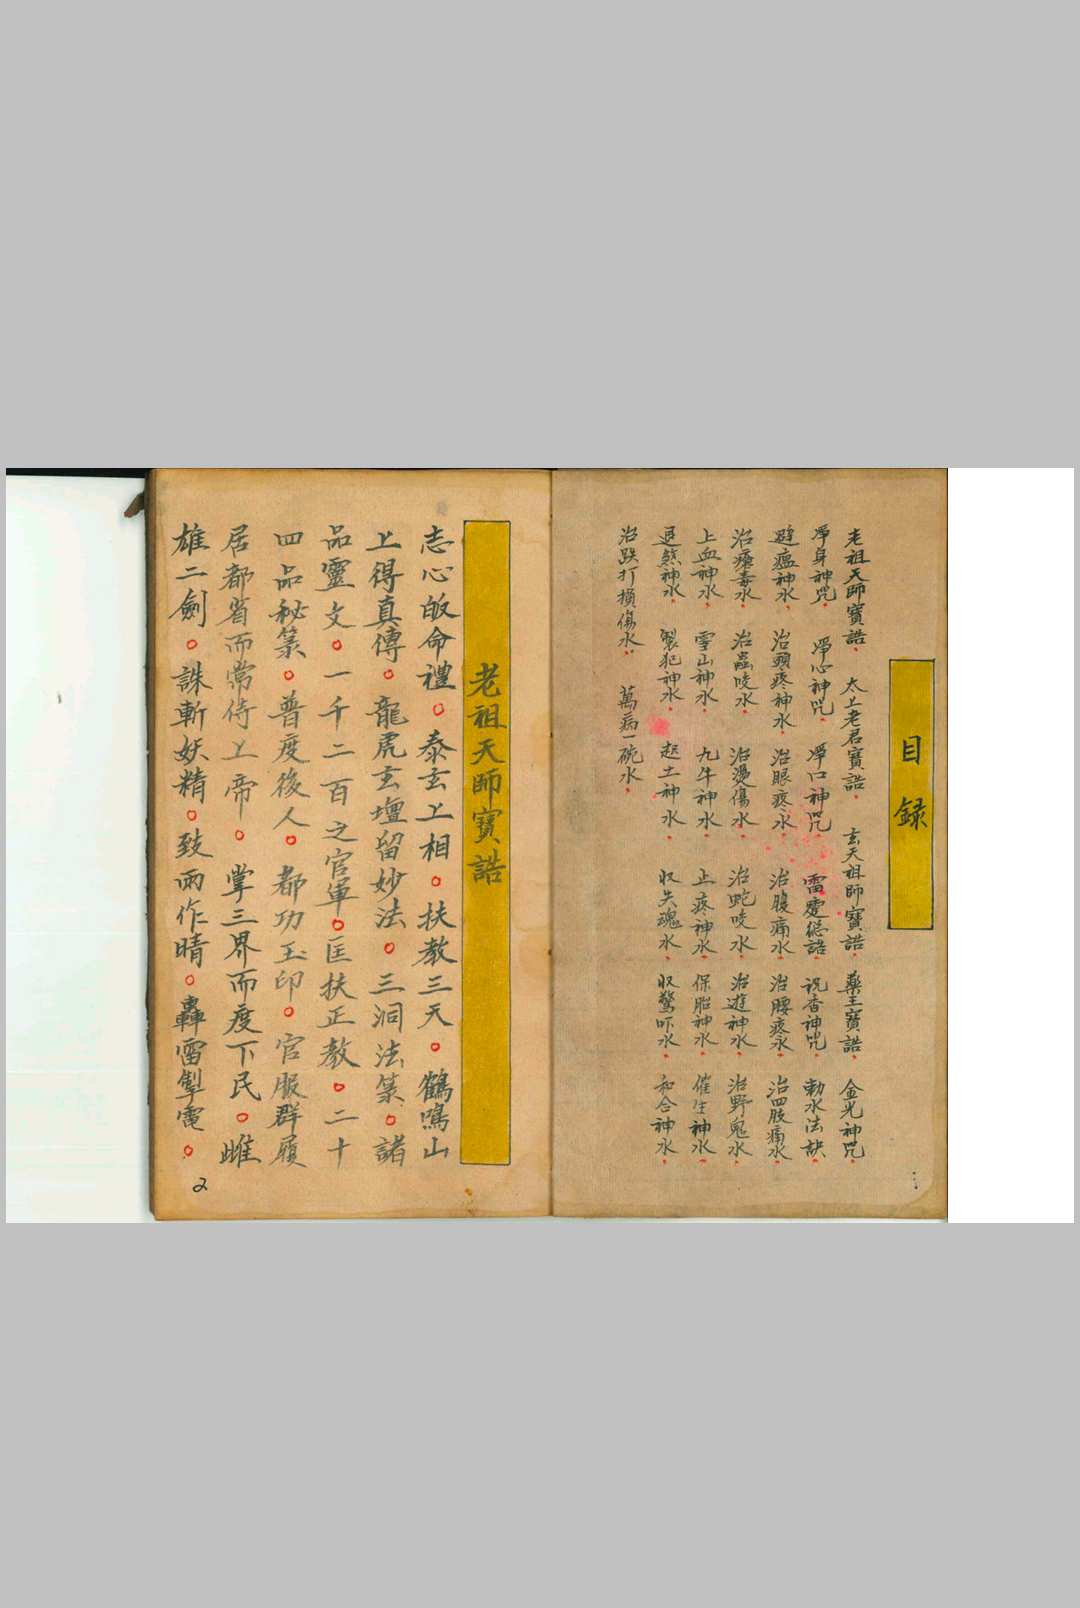 目録
老祖天師寶誥 太上老君寶誥 玄天祖師寶誥 藥王寶誥 金光神咒
淨身神咒 淨心神咒 淨口神咒 雷霆總誥 祝香神咒 勅水法訣
避瘟神水 治頭疼神水 治眼疼水 治腹痛水 治腰疼水 治四肢痛水
治瘡毒水 治蟲咬水 治燙傷水 治蛇咬水 治遊神水 治野鬼水
止血神水 雪山神水 九牛神水 止疼神水 保胎神水 催生神水
退煞神水 製犯神水 起土神水 収失魂水 収驚吓水 和合神水
治跌打損傷水 萬病一碗水
老祖天師寶誥
志心皈命禮。泰玄上相。扶教三天。鶴鳴山
上得真傳。龍虎玄壇留妙法。三洞法籙。諸
品靈文。一千二百之官軍。匡扶正教。二十
四品秘籙。普度後人。都功玉印。官服群履
居都省而常侍上帝。掌三界而度下民。雌
雄二劍。誅斬妖精。致雨作晴。轟雷掣電。
2